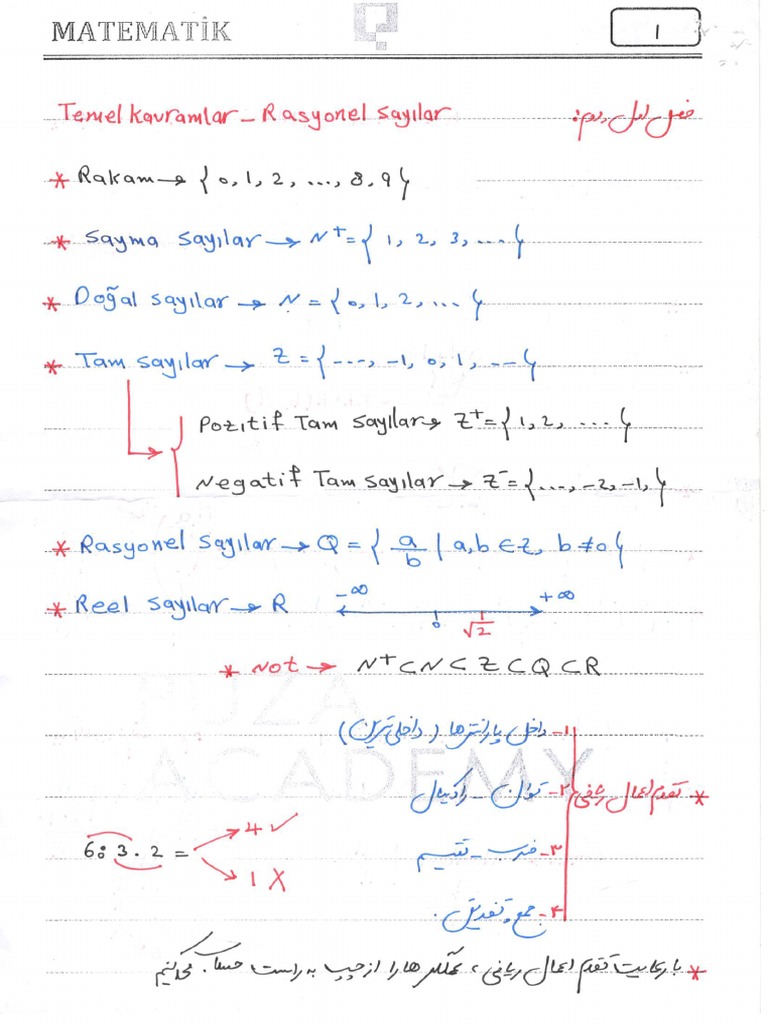 MATEMATİK
1
Temel kavramlar _ Rasyonel sayılar فصل اول و دوم:
* Rakam → { 0, 1, 2, ..., 8, 9 }
* Sayma sayılar → N⁺ = { 1, 2, 3, ... }
* Doğal sayılar → N = { 0, 1, 2, ... }
* Tam sayılar → Z = { ..., -1, 0, 1, ... }
Pozitif Tam sayılar → Z⁺ = { 1, 2, ... }
Negatif Tam sayılar → Z⁻ = { ..., -2, -1, }
* Rasyonel sayılar → Q = { a/b | a, b ∈ Z, b ≠ 0 }
* Reel sayılar → R -∞ 0 √2 +∞
* Not → N⁺ ⊂ N ⊂ Z ⊂ Q ⊂ R
PUZA
ACADEMY
* تقدم اعمال ریاضی
۱- داخل پارانتزها (داخلی‌ترین)
۲- توان - رادیکال
۳- ضرب - تقسیم
۴- جمع و تفریق.
6 : 3 . 2 = 4 ✓
1 X
* با رعایت تقدم اعمال ریاضی، عملگرها را از چپ به راست حساب می‌کنیم